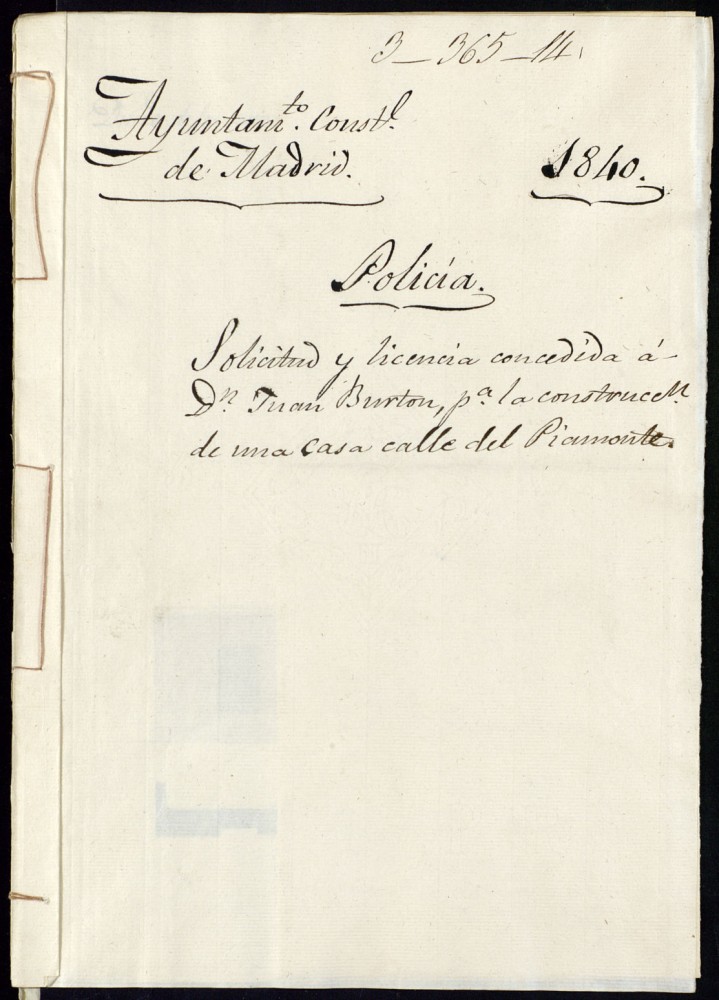 3-365-14
Ayuntam.to Const.l
de Madrid.
1840.
Policía.
Solicitud y licencia concedida á
D.n Juan Burton, p.a la construcc.n
de una casa calle del Piamonte.